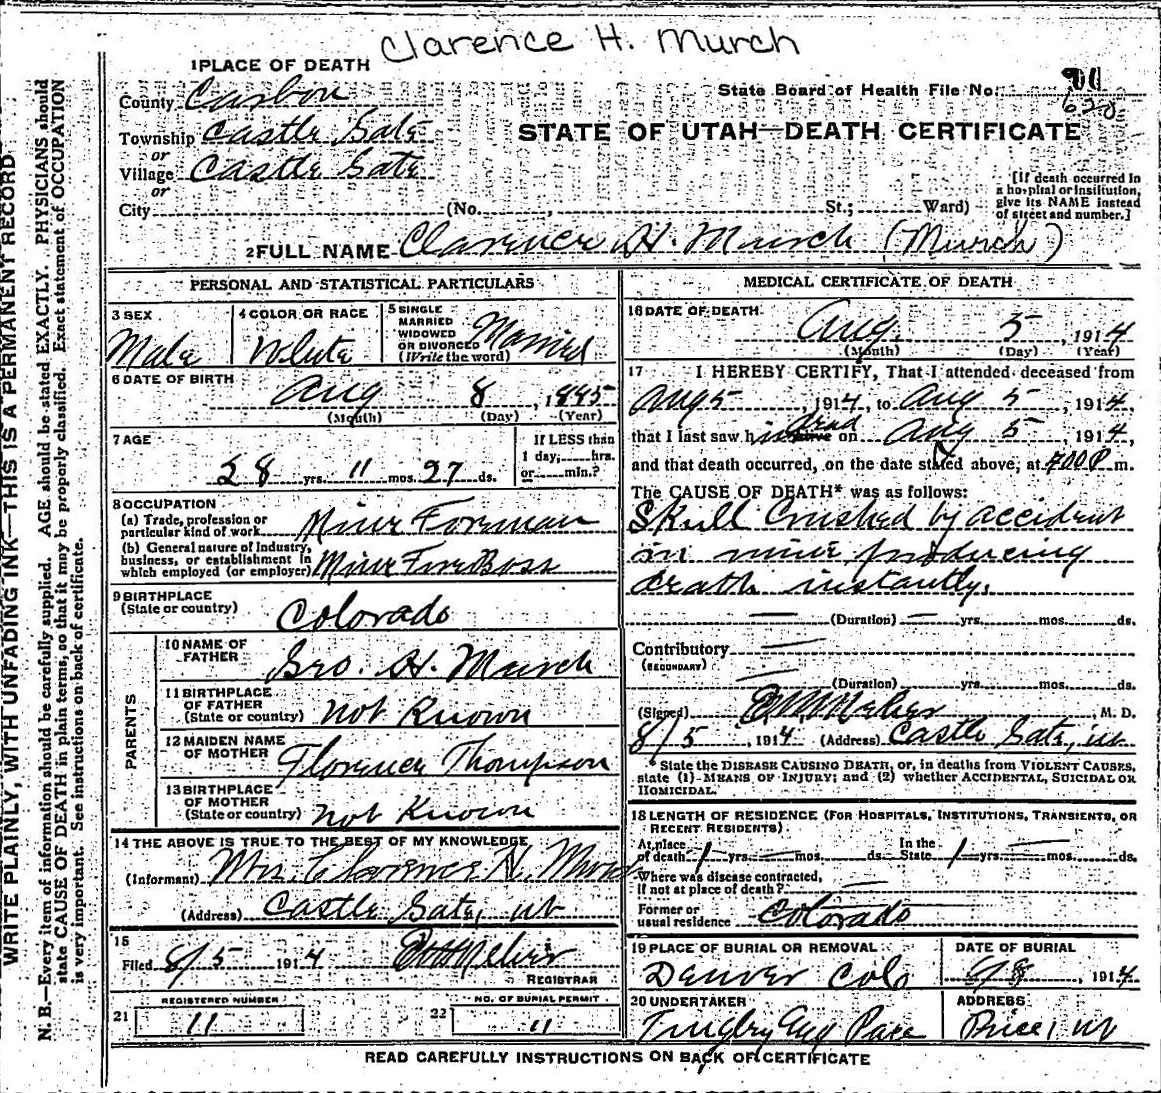 Clarence H. Murch
1 PLACE OF DEATH
County Carbon
State Board of Health File No.
628
Township Castle Gate
STATE OF UTAH—DEATH CERTIFICATE
or
Village Castle Gate
or
City (No. , St.; Ward)
[If death occurred in a hospital or institution, give its NAME instead of street and number.]
2 FULL NAME Clarence H. Murch (Murch)
PERSONAL AND STATISTICAL PARTICULARS
3 SEX Male
4 COLOR OR RACE White
5 SINGLE MARRIED WIDOWED OR DIVORCED (Write the word) Married
6 DATE OF BIRTH Aug 8, 1885
(Month) (Day) (Year)
7 AGE
28 yrs. 11 mos. 27 ds.
If LESS than 1 day, hrs. or min.?
8 OCCUPATION
(a) Trade, profession or particular kind of work Mine Foreman
(b) General nature of Industry, business, or establishment in which employed (or employer) Mine Fire Boss
9 BIRTHPLACE
(State or country) Colorado
PARENTS
10 NAME OF FATHER Geo. H. Murch
11 BIRTHPLACE OF FATHER (State or country) Not Known
12 MAIDEN NAME OF MOTHER Florence Thompson
13 BIRTHPLACE OF MOTHER (State or country) Not Known
14 THE ABOVE IS TRUE TO THE BEST OF MY KNOWLEDGE
(Informant) Mrs. Clarence H. Murch
(Address) Castle Gate, Ut
15
Filed 8/5 1914
REGISTRAR
21 REGISTERED NUMBER 11
22 NO. OF BURIAL PERMIT 11
MEDICAL CERTIFICATE OF DEATH
16 DATE OF DEATH Aug. 5, 1914
(Month) (Day) (Year)
17 I HEREBY CERTIFY, That I attended deceased from
Aug 5, 1914, to Aug 5, 1914,
that I last saw him dead alive on Aug 5, 1914,
and that death occurred, on the date stated above, at 700 P m.
The CAUSE OF DEATH* was as follows:
Skull Crushed by accident
in mine producing
death instantly.
(Duration) yrs. mos. ds.
Contributory
(SECONDARY)
(Duration) yrs. mos. ds.
(Signed) , M. D.
8/5, 1914 (Address) Castle Gate, Ut
* State the DISEASE CAUSING DEATH, or, in deaths from VIOLENT CAUSES, state (1) MEANS OF INJURY; and (2) whether ACCIDENTAL, SUICIDAL OR HOMICIDAL.
18 LENGTH OF RESIDENCE (FOR HOSPITALS, INSTITUTIONS, TRANSIENTS, OR RECENT RESIDENTS)
At place of death 1 yrs. mos. ds. In the State 1 yrs. mos. ds.
Where was disease contracted, if not at place of death?
Former or usual residence Colorado
19 PLACE OF BURIAL OR REMOVAL Denver Colo
DATE OF BURIAL 8/8, 1914
20 UNDERTAKER
ADDRESS Price, Ut
READ CAREFULLY INSTRUCTIONS ON BACK OF CERTIFICATE
WRITE PLAINLY, WITH UNFADING INK—THIS IS A PERMANENT RECORD
N. B.—Every item of information should be carefully supplied. AGE should be stated EXACTLY. PHYSICIANS should
state CAUSE OF DEATH in plain terms, so that it may be properly classified. Exact statement of OCCUPATION
is very important. See instructions on back of certificate.